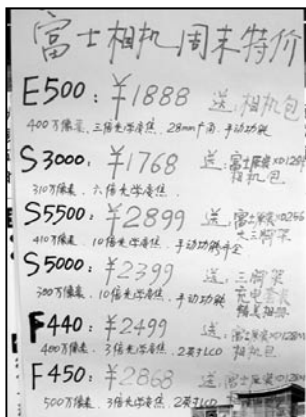 富士相机周末特价
E500：¥1888 送：相机包
400万像素、三倍光学变焦、28mm广角、手动功能
S3000：¥1768 送：富士原装XD128M
相机包
310万像素、六倍光学变焦、
S5500：¥2899 送：富士原装XD256
大三脚架
410万像素、10倍光学变焦、手动功能齐全
S5000：¥2399 送：三脚架
充电套装
精美相册
300万像素、10倍光学变焦、手动功能
F440：¥2499 送：富士原装XD128M
相机包
400万像素、3倍光学变焦、2英寸LCD
F450：¥2868 送：富士原装XD128M
500万像素、3倍光学变焦、2英寸LCD 相机包